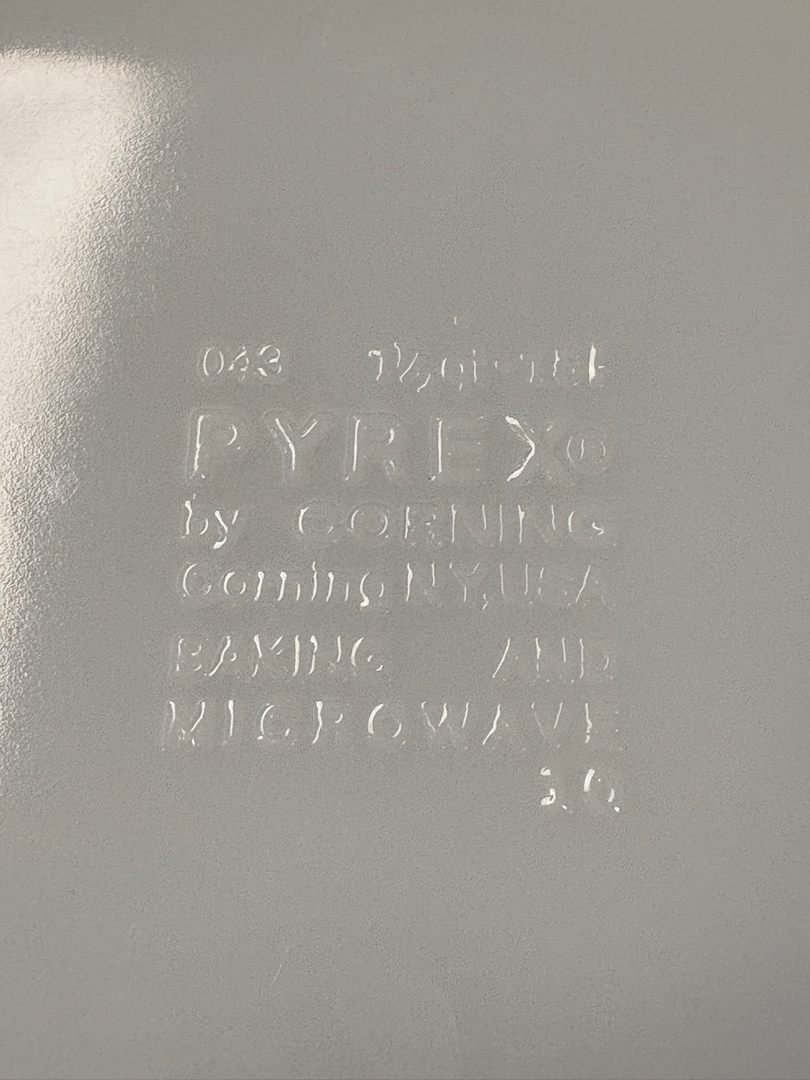 043 1½qt-1.5l
PYREX®
by CORNING
Corning NY,USA
BAKING AND
MICROWAVE